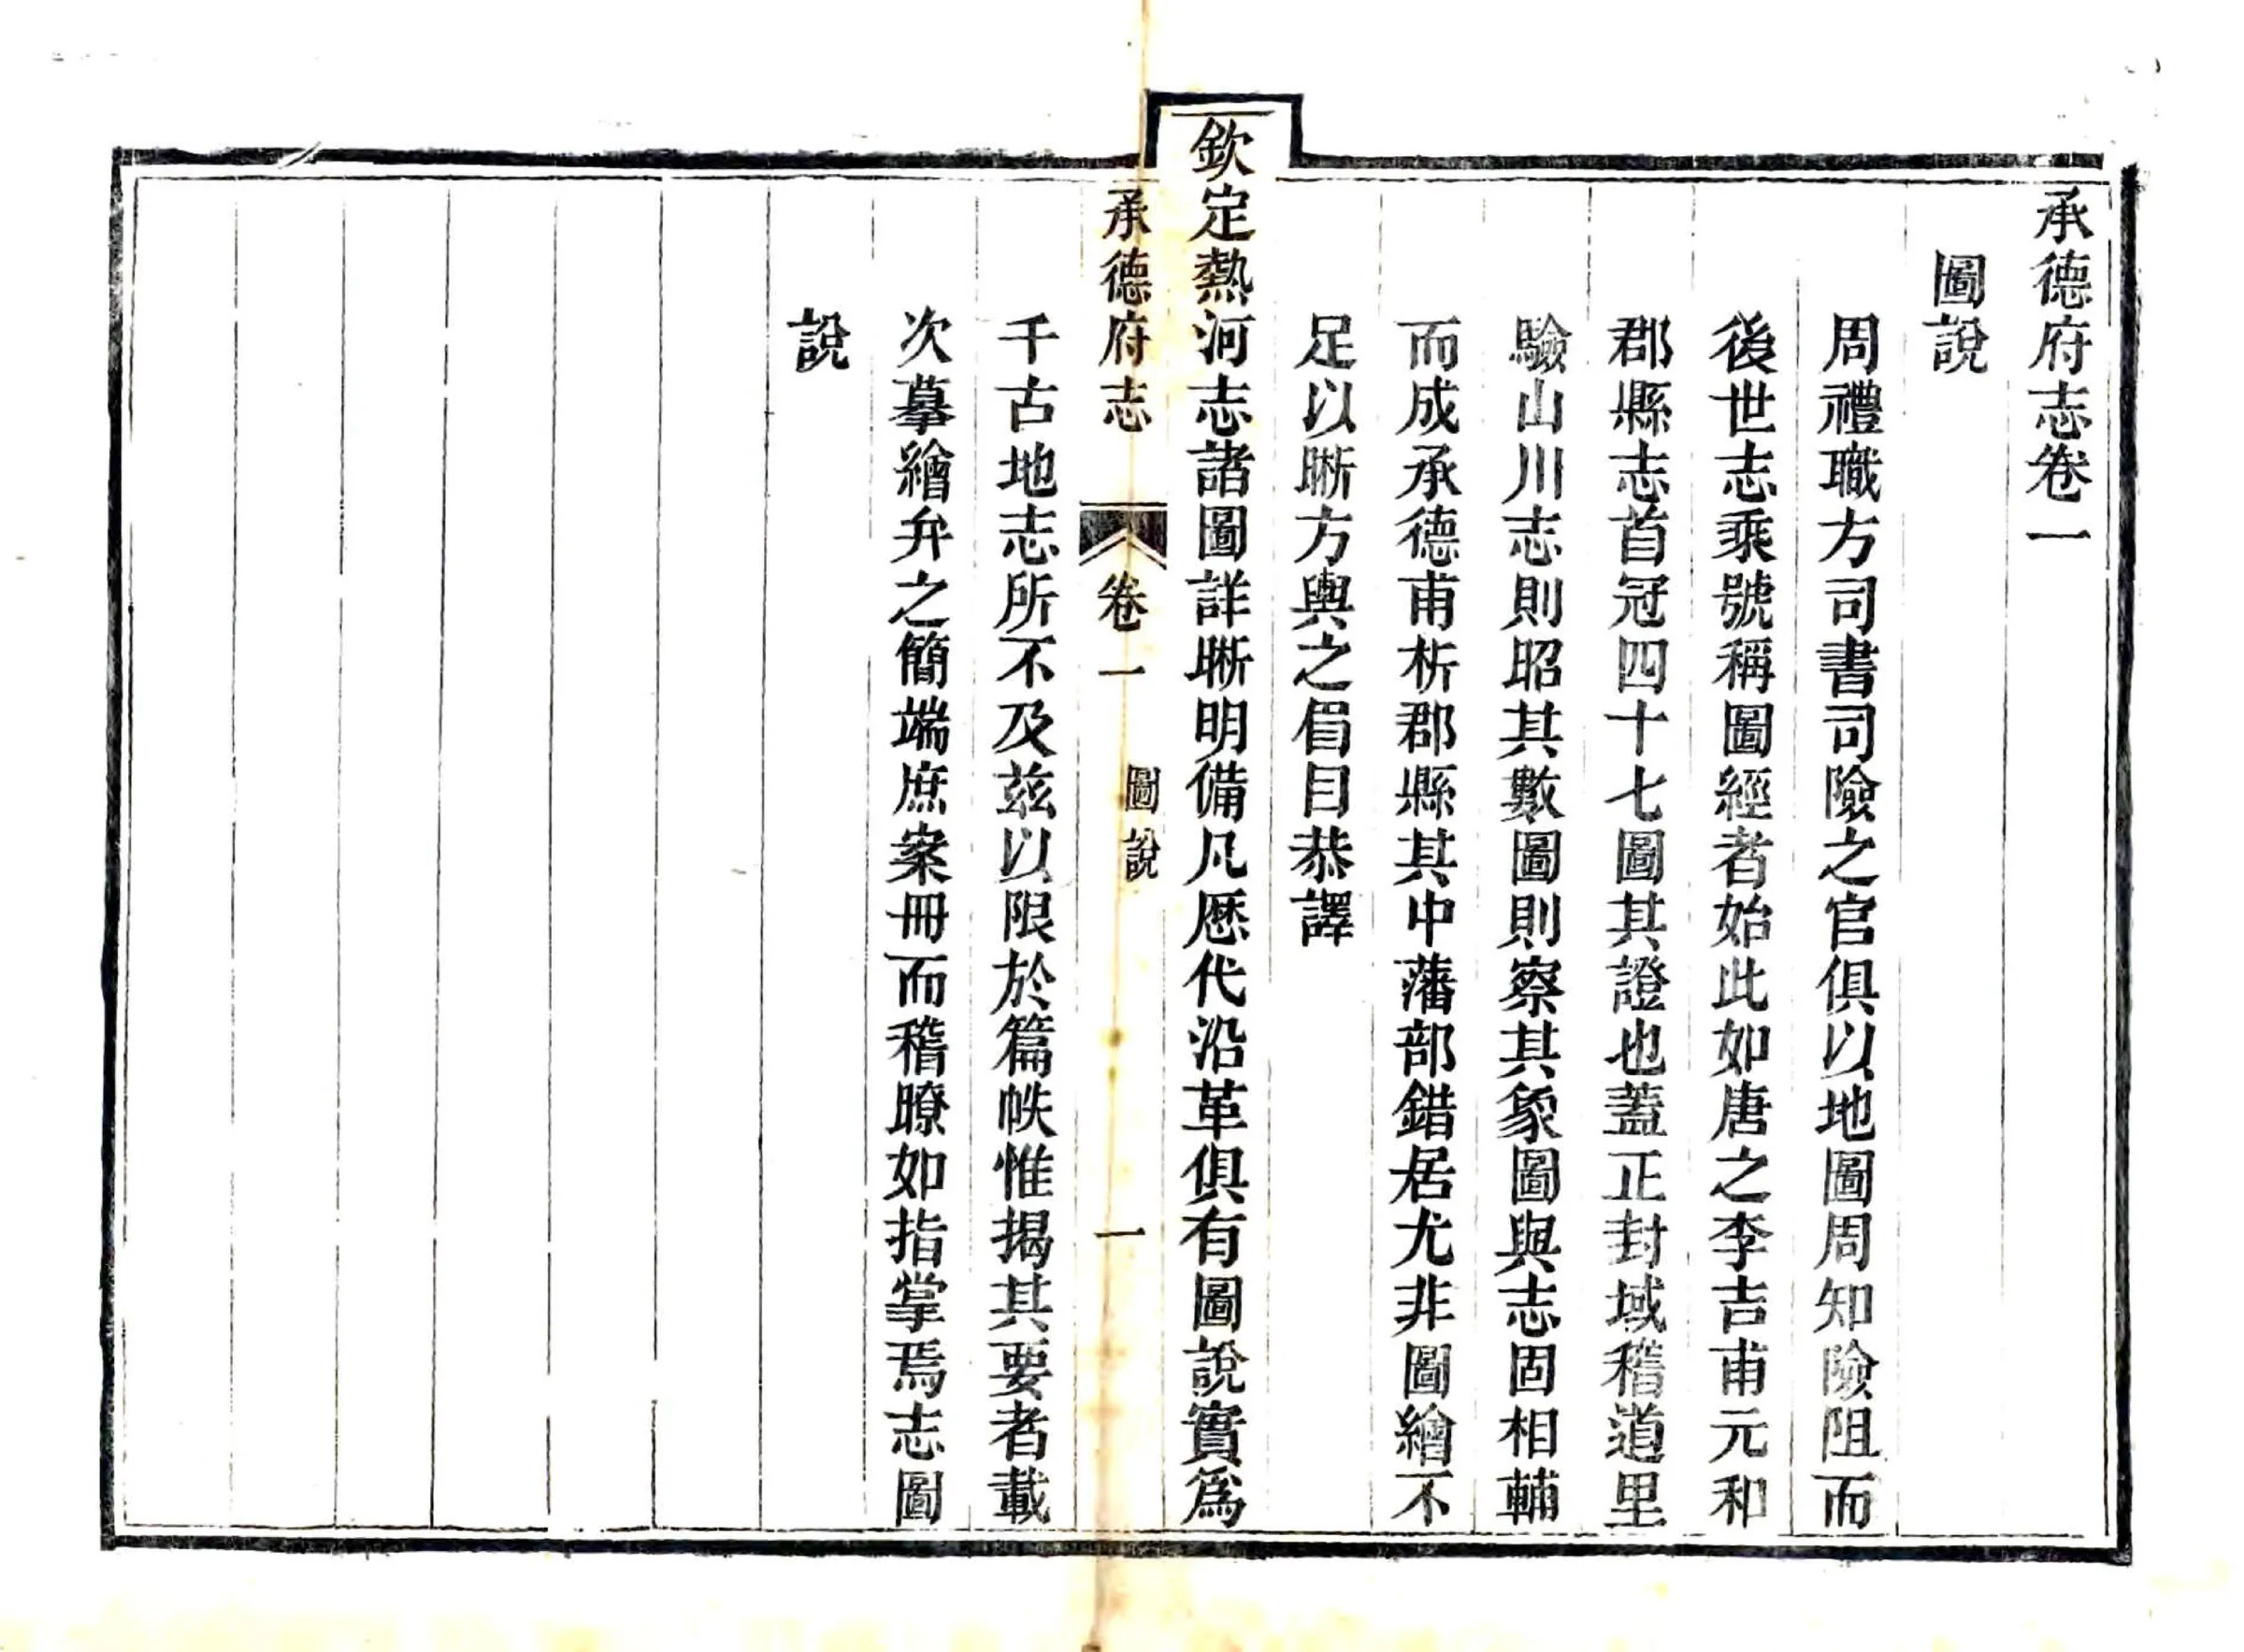 承德府志卷一
圖說
周禮職方司書司險之官俱以地圖周知險阻而
後世志乘號稱圖經者始此如唐之李吉甫元和
郡縣志首冠四十七圖其證也蓋正封域稽道里
驗山川志則昭其數圖則察其象圖與志固相輔
而成承德甫析郡縣其中藩部錯居尤非圖繪不
足以晰方輿之眉目恭譯
欽定熱河志諸圖詳晰明備凡厯代沿革俱有圖說實爲
承德府志 卷一 圖說 一
千古地志所不及茲以限於篇帙惟揭其要者載
次摹繪弁之簡端庶案冊而稽瞭如指掌焉志圖
說